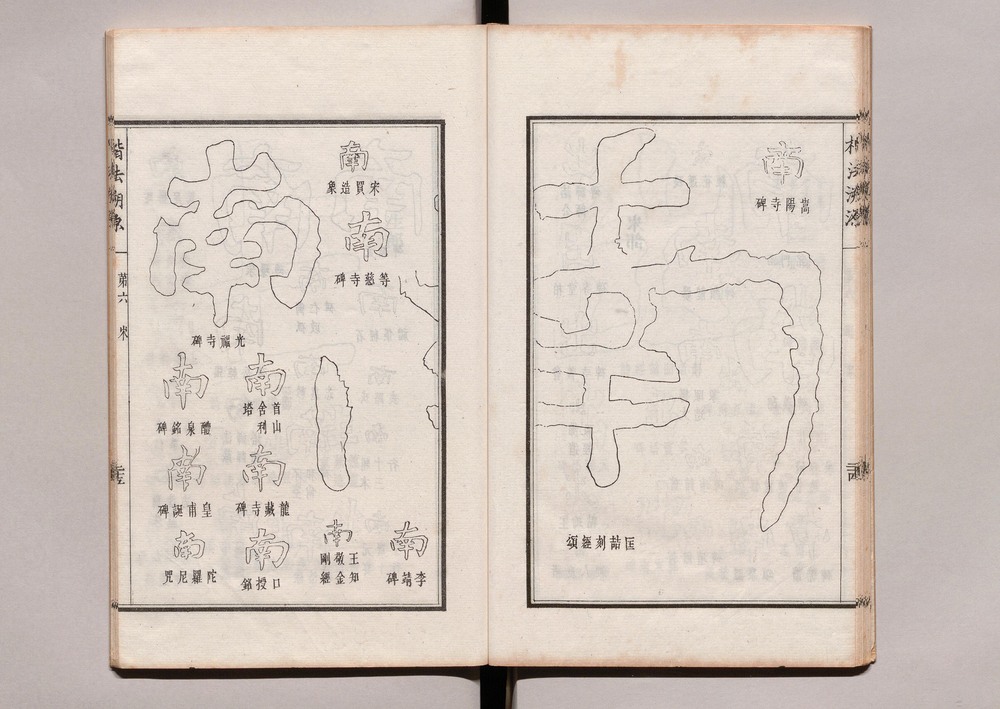 楷法溯源
南
嵩陽寺碑
南
匡喆刻經頌
南
宋買造象
南
等慈寺碑
南
李靖碑
南
王知敬金剛經
南
光福寺碑
南
首山舍利塔
南
龍藏寺碑
南
口授銘
南
醴泉銘碑
南
皇甫誕碑
南
陀羅尼咒
楷法溯源
第六